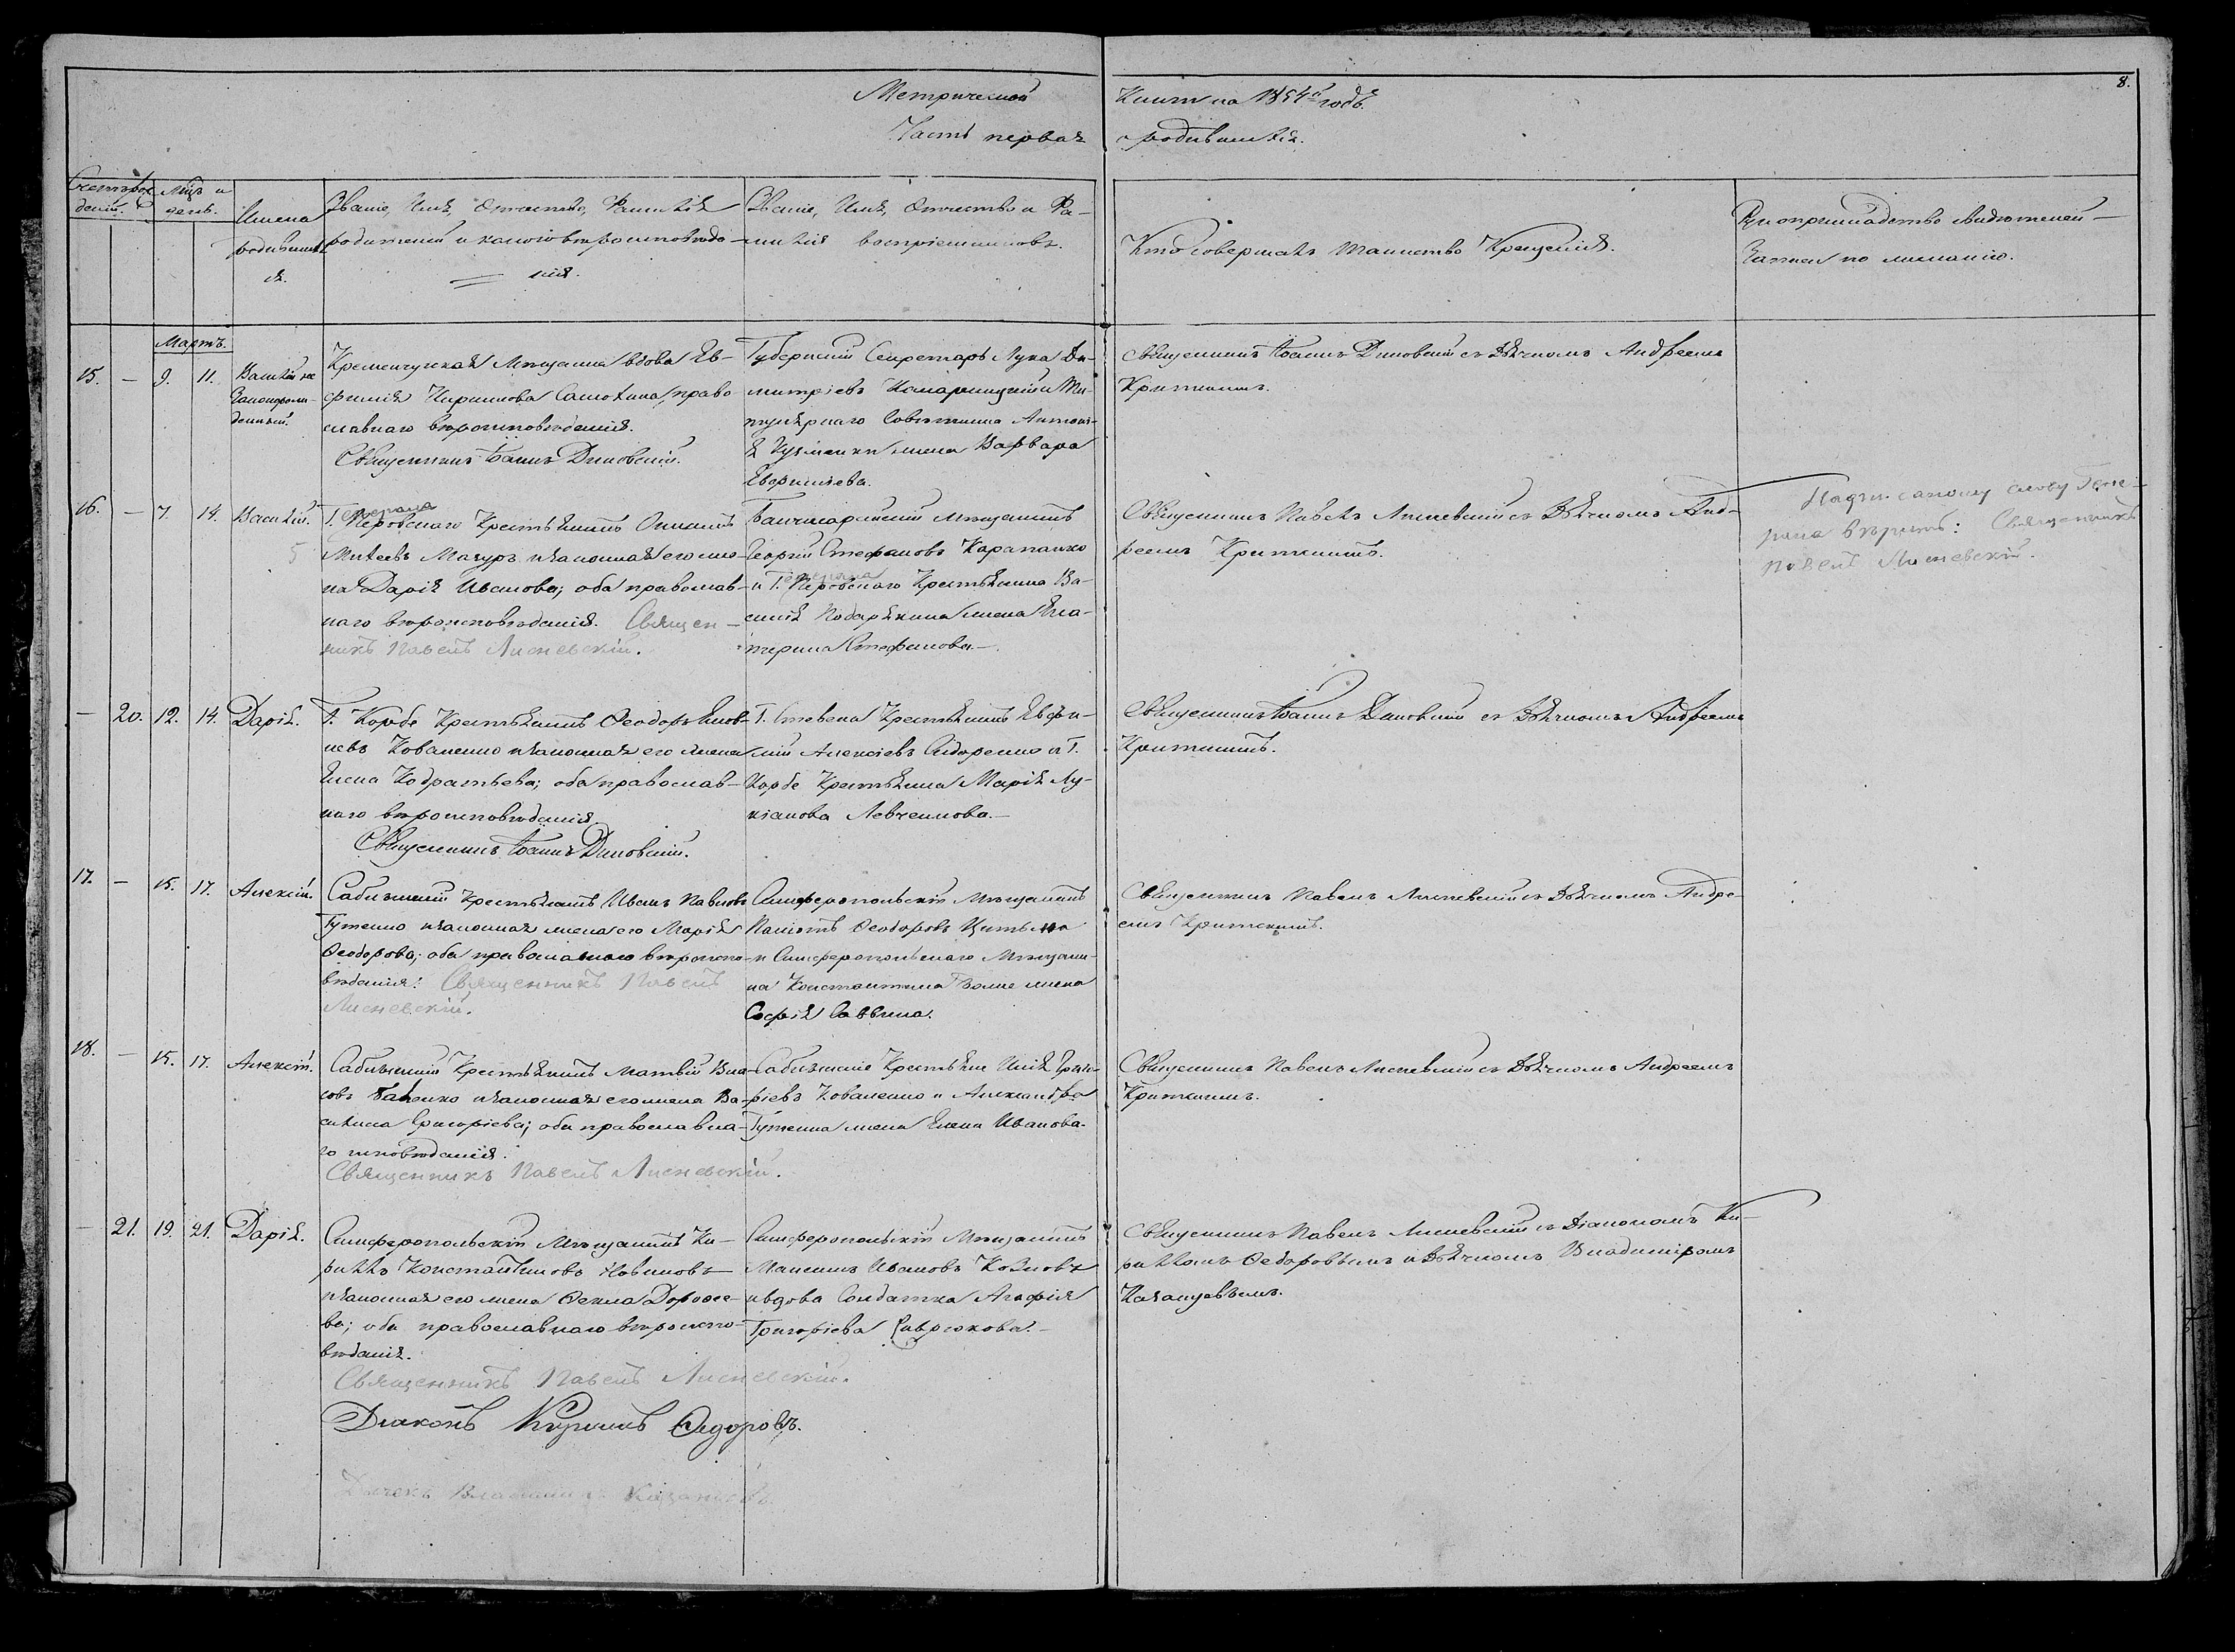 Метрической Книги на 1854й годъ.
Часть первая о родившихся.
8.
Счетъ рож-
деній.
Мцъ и
день.
Имена
родивших
ся.
Званіе, Имя, Отчество, Фамилія
родителей и какого вѣроисповѣда-
нія.
Званіе, Имя, Отчество и Фа-
милія воспріемниковъ.
Кто совершалъ таинство Крещенія.
Рукоприкладство свидѣтелей
записи по желанію.
Мартъ.
15. — 9. 11. Василій не
законорож-
денный.
Кременчугская Мѣщанка вдова Ев-
фимія Кириллова право
славнаго вѣроисповѣданія.
Священникъ Іоаннъ Диковскій.
Губернскій Секретарь Лука Ди-
митріевъ и Ти-
тулярнаго Совѣтника Антоні-
я жена Варвара
Священникъ Іоаннъ Диковскій съ Дьячкомъ Андреемъ
Критскимъ.
16. — 7. 14. Василій.
Генерала
Г. Перовскаго Крестьянинъ
5
Михеевъ Мазуръ и законная его же-
на Дарія Иванова; оба православ-
наго вѣроисповѣданія. Священ-
никъ Павелъ Лисневскій.
Бахчисарайскій Мѣщанинъ
Георгій Стефановъ
Генерала
и Г. Перовскаго Крестьянина Ва-
силія жена Ека-
терина Стефанова.
Священникъ Павелъ Лисневскій съ Дьячкомъ Анд-
реемъ Критскимъ.
Надпи. самому слову Гене-
рала вѣрить: Священникъ
Павелъ Лисневскій.
— 20. 12. 14. Дарія.
Г. Корбе Крестьянинъ Ѳеодоръ
Коваленко и законная его жена
Елена Кодратьева; оба православ-
наго вѣроисповѣданія.
Священникъ Іоаннъ Диковскій.
Г. Стевена Крестьянинъ Евфи-
мій Алексіевъ Сидоренко и Г.
Корбе Крестьянка Марія Лу-
кіанова Левченкова.
Священникъ Іоаннъ Диковскій съ Дьячкомъ Андреемъ
Критскимъ.
17. — 15. 17. Алексій.
Саблынскій Крестьянинъ Иванъ Павловъ
Гутенко и законная жена его Марія
Ѳеодорова; оба православнаго вѣроиспо-
вѣданія: Священникъ Павелъ
Лисневскій.
Симферопольскій Мѣщанинъ
Ѳеодоровъ
и Симферопольскаго Мѣщани-
на Константина жена
Софія Саввина.
Священникъ Павелъ Лисневскій съ Дьячкомъ Андре-
емъ Критскимъ.
18. — 15. 17. Алексій.
Саблынскій Крестьянинъ Матвій Вла-
совъ и законная его жена Ва-
силиса Григоріева; оба православна-
го исповѣданія.
Священникъ Павелъ Лисневскій.
Саблынскіе Крестьяне Илія Григо-
ріевъ Коваленко и Александра
Гутенка жена Елена Иванова.
Священникъ Павелъ Лисневскій съ Дьячкомъ Андреемъ
Критскимъ.
— 21. 19. 21. Дарія.
Симферопольскій Мѣщанинъ Ки-
риллъ Константиновъ Новиковъ
и законная его жена Ѳекла Дороѳе-
ва; оба православнаго вѣроиспо-
вѣданія.
Священникъ Павелъ Лисневскій.
Діаконъ Кириллъ Ѳедоровъ.
Дьячекъ Владиміръ Казанцевъ.
Симферопольскій Мѣщанинъ
Максимъ Ивановъ Козловъ
и вдова Солдатка Агафія
Григоріева Гаврюкова.
Священникъ Павелъ Лисневскій съ Діакономъ Ки-
рилломъ Ѳедоровымъ и Дьячкомъ Владиміромъ
Казанцевымъ.